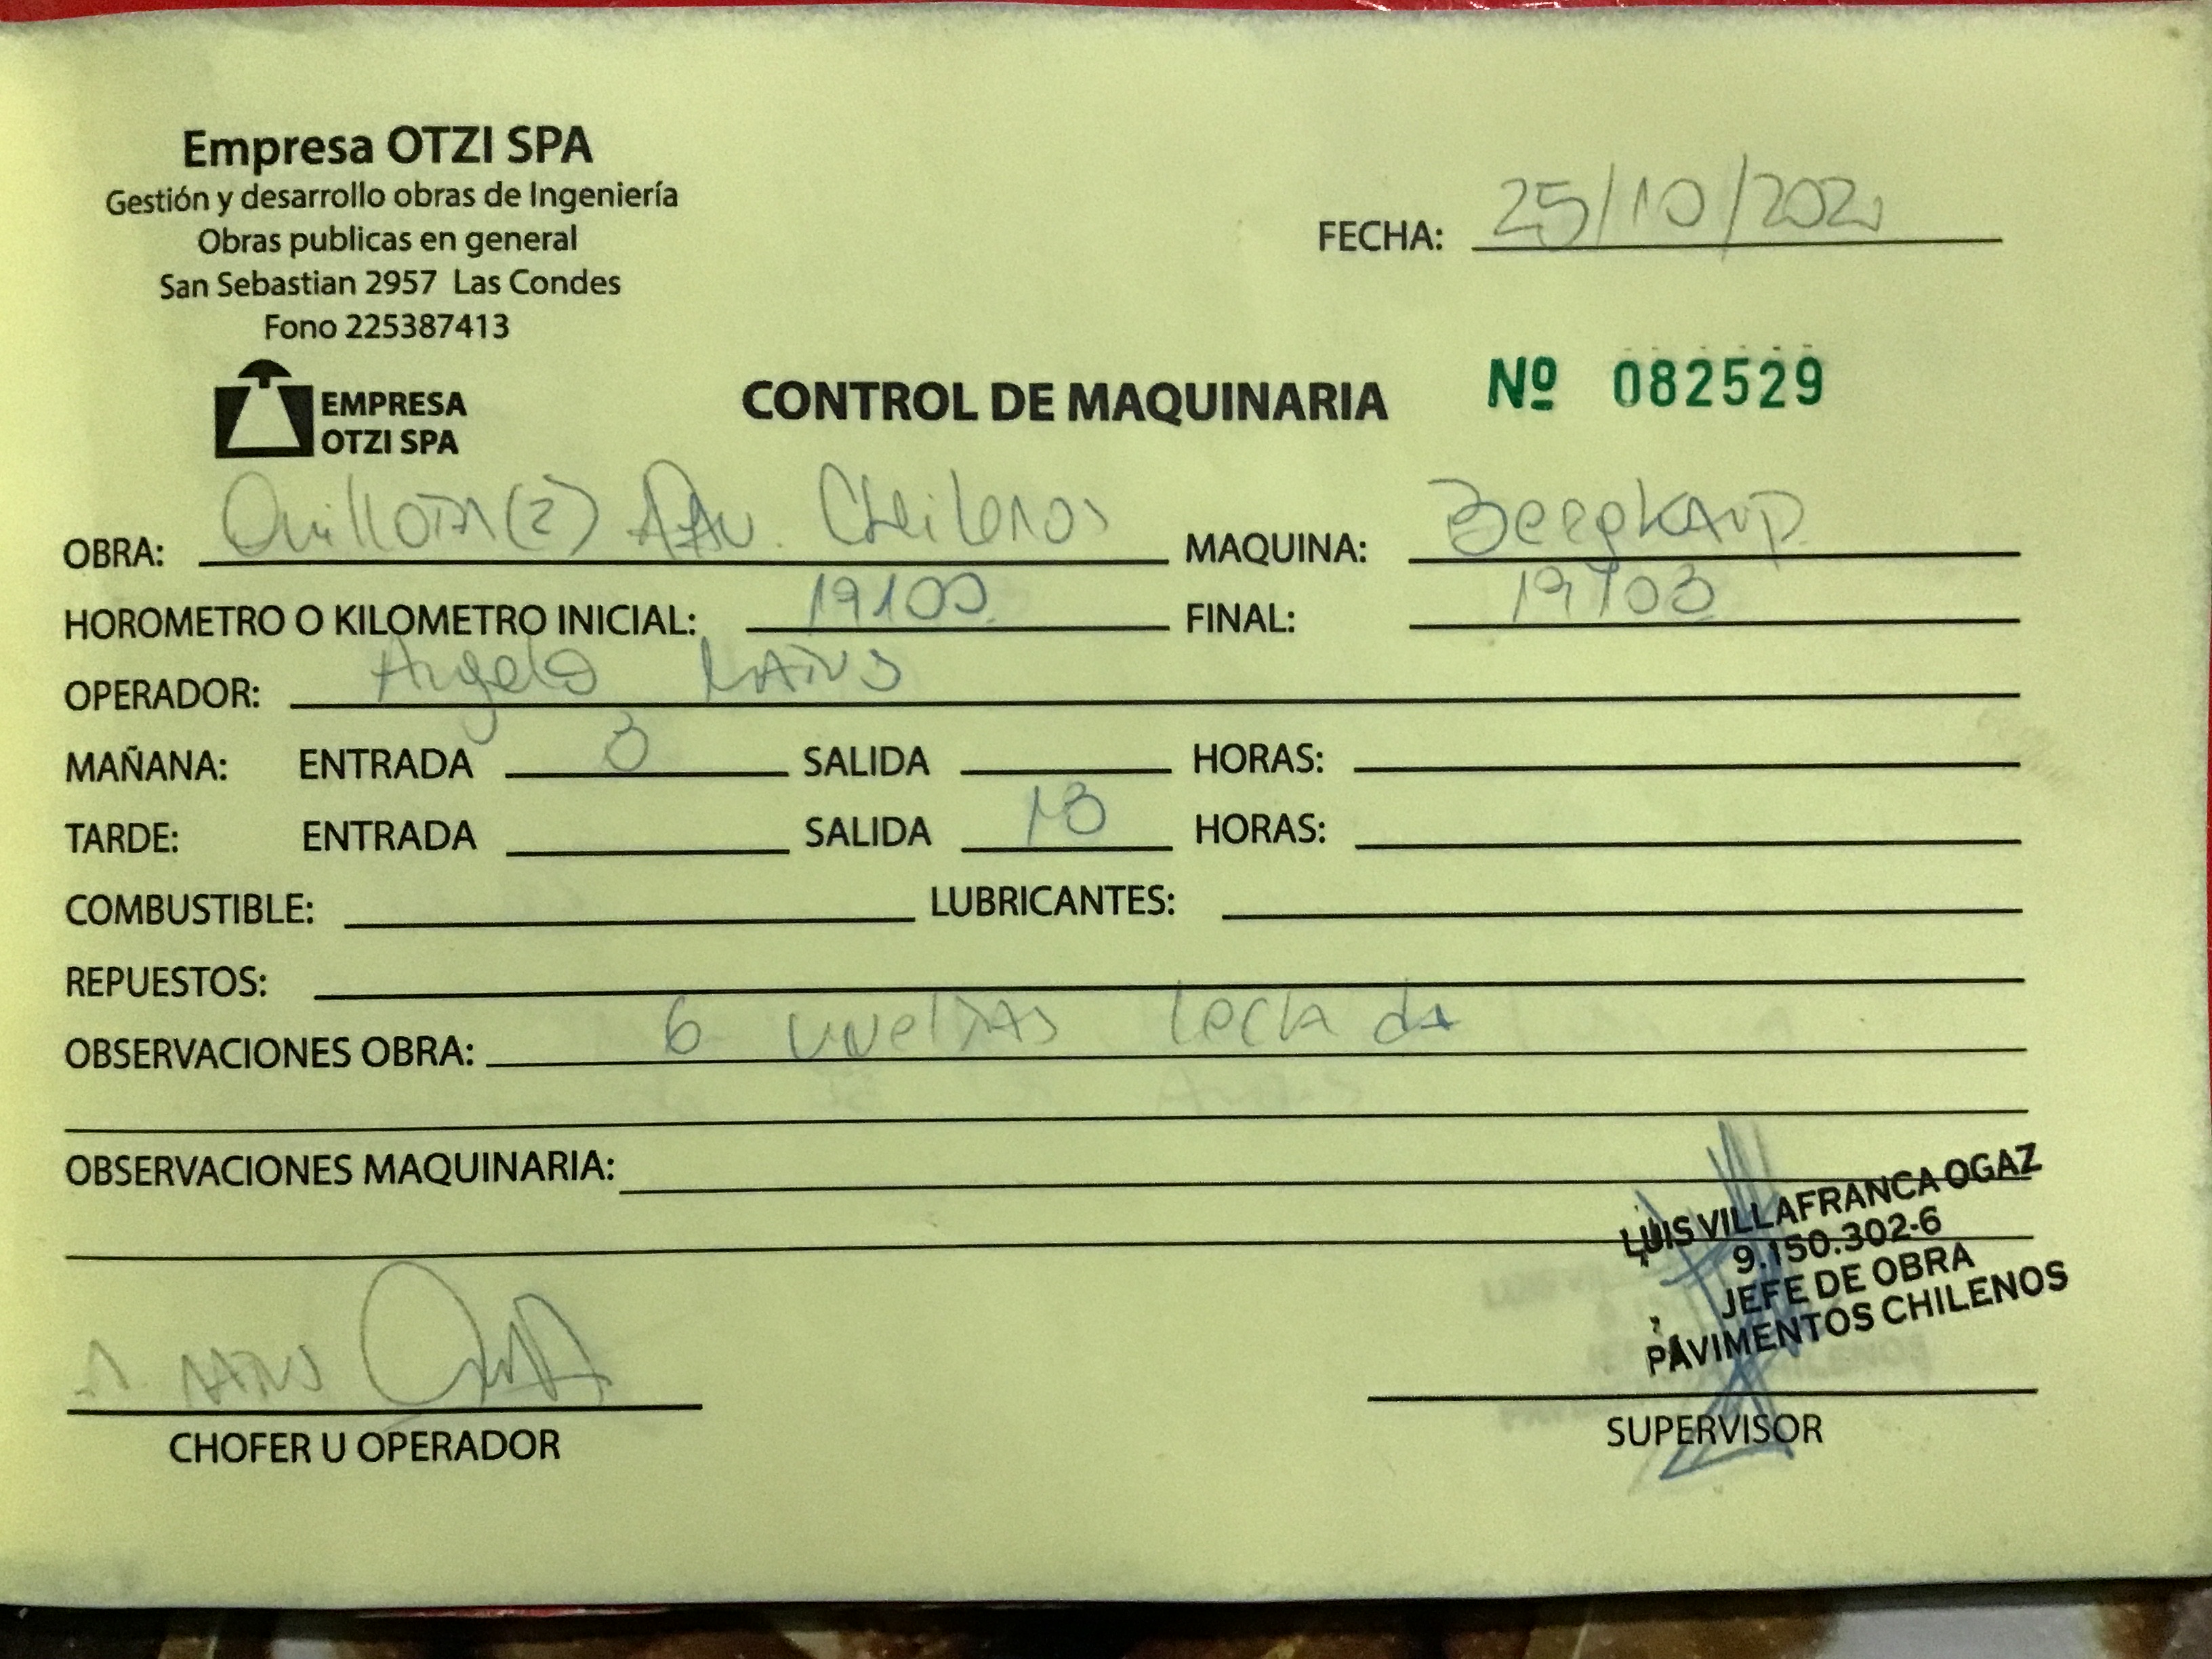 Empresa OTZI SPA
Gestión y desarrollo obras de Ingeniería
Obras publicas en general
San Sebastian 2957 Las Condes
Fono 225387413
EMPRESA
OTZI SPA
FECHA: 25/10/202
CONTROL DE MAQUINARIA Nº 082529
OBRA: Quillota (2) Pav. Chilenos MAQUINA: Bergkamp
HOROMETRO O KILOMETRO INICIAL: 19100 FINAL: 19103
OPERADOR: Angelo
MAÑANA: ENTRADA 8 SALIDA HORAS:
TARDE: ENTRADA SALIDA 18 HORAS:
COMBUSTIBLE: LUBRICANTES:
REPUESTOS:
OBSERVACIONES OBRA: 6 vueltas lechada
OBSERVACIONES MAQUINARIA:
LUIS VILLAFRANCA OGAZ
9.150.302-6
JEFE DE OBRA
PAVIMENTOS CHILENOS
CHOFER U OPERADOR
SUPERVISOR